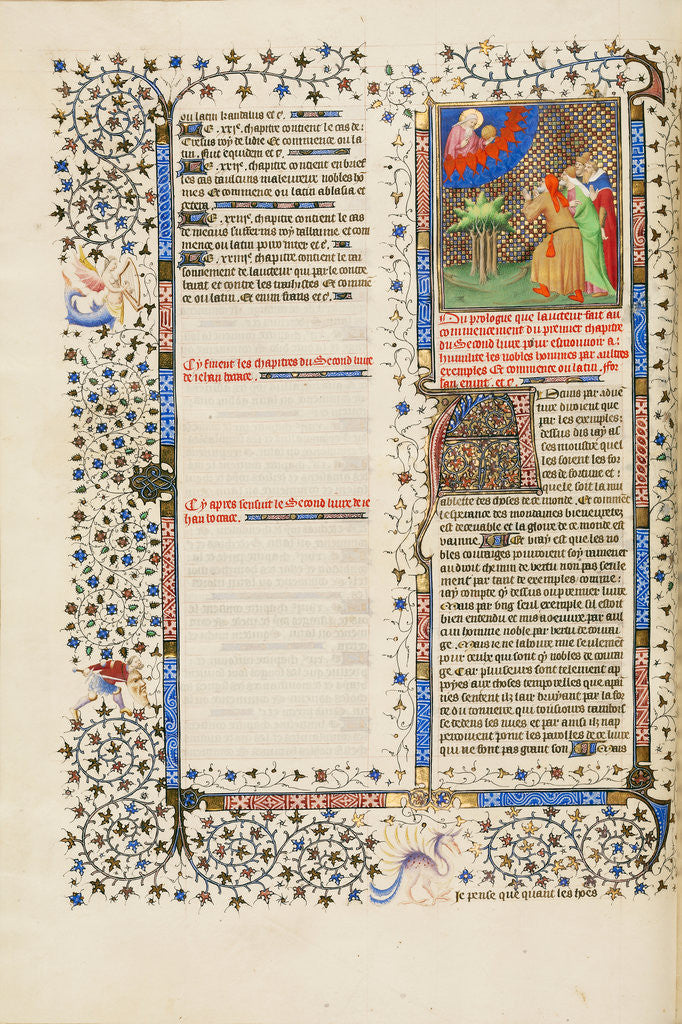 ou latin tantalus et cͤ.
Le .xxiͤ. chapitre contient le cas de:
Cresus roy de lidie et commence ou la
tin. fuit equidem et cͤ.
Le .xxiiͤ. chapitre contient en brief
les cas daucuns maleureux nobles hō
mes Et commence ou latin ablasia et
cetera
Le .xxiiiͤ. chapitre contient le cas
de mecius suffecius roy dalbanie. et com
mence ou latin
Le .xxiiiiͤ. chapitre contient le rai
sonnement de lauteur qui parle contre
barat et contre les tricheurs Et commē
ce ou latin. Et enim fraus et cͤ.
Cy finent les chapitres du Second liure
de iehan bocace.
Cy apres sensuit le Second liure de ie
han bocace.
Du prologue que lauteur fait au
commencement du premier chapitre
du Second liure pour esmouuoir a:
humilite les nobles hommes par aultres
exemples Et commence ou latin. ffor
san erunt. et cͤ.
Aucuns par aduē
ture diroient que
par les exemples:
dessus dis iay as
ses monstre quel
les soient les for
ces de fortune et:
quele soit la mu
ablette des choses de ce monde. Et comment
lesperance des mondaines bieneuretes
est deceuable et la gloire de ce monde est
vainne. Et vray est que les no
bles couraiges pouoient soy ramener
au doit chemin de vertu non pas seule
ment par tant de exemples comme:
iay compte cy dessus ou premier liure
Mais par vng seul exemple sil estoit
bien entendu et mis a oeuure par aul
cun homme noble par vertu de coura
ge. Mais ie ne laboure mie seulement
pour ceulx qui sont cy nobles de coura
ge Car pluseurs sont telement ap
poyes aux choses temporelles que apai
nes sentent ilz lair bruyant par la for
ce du tonnerre qui tousiours tambois
se dedens les nues et par ainsi ilz nap
percoiuent point les parolles de ce liure
qui ne sont pas grant son Mais
Je pense que quant les hōes